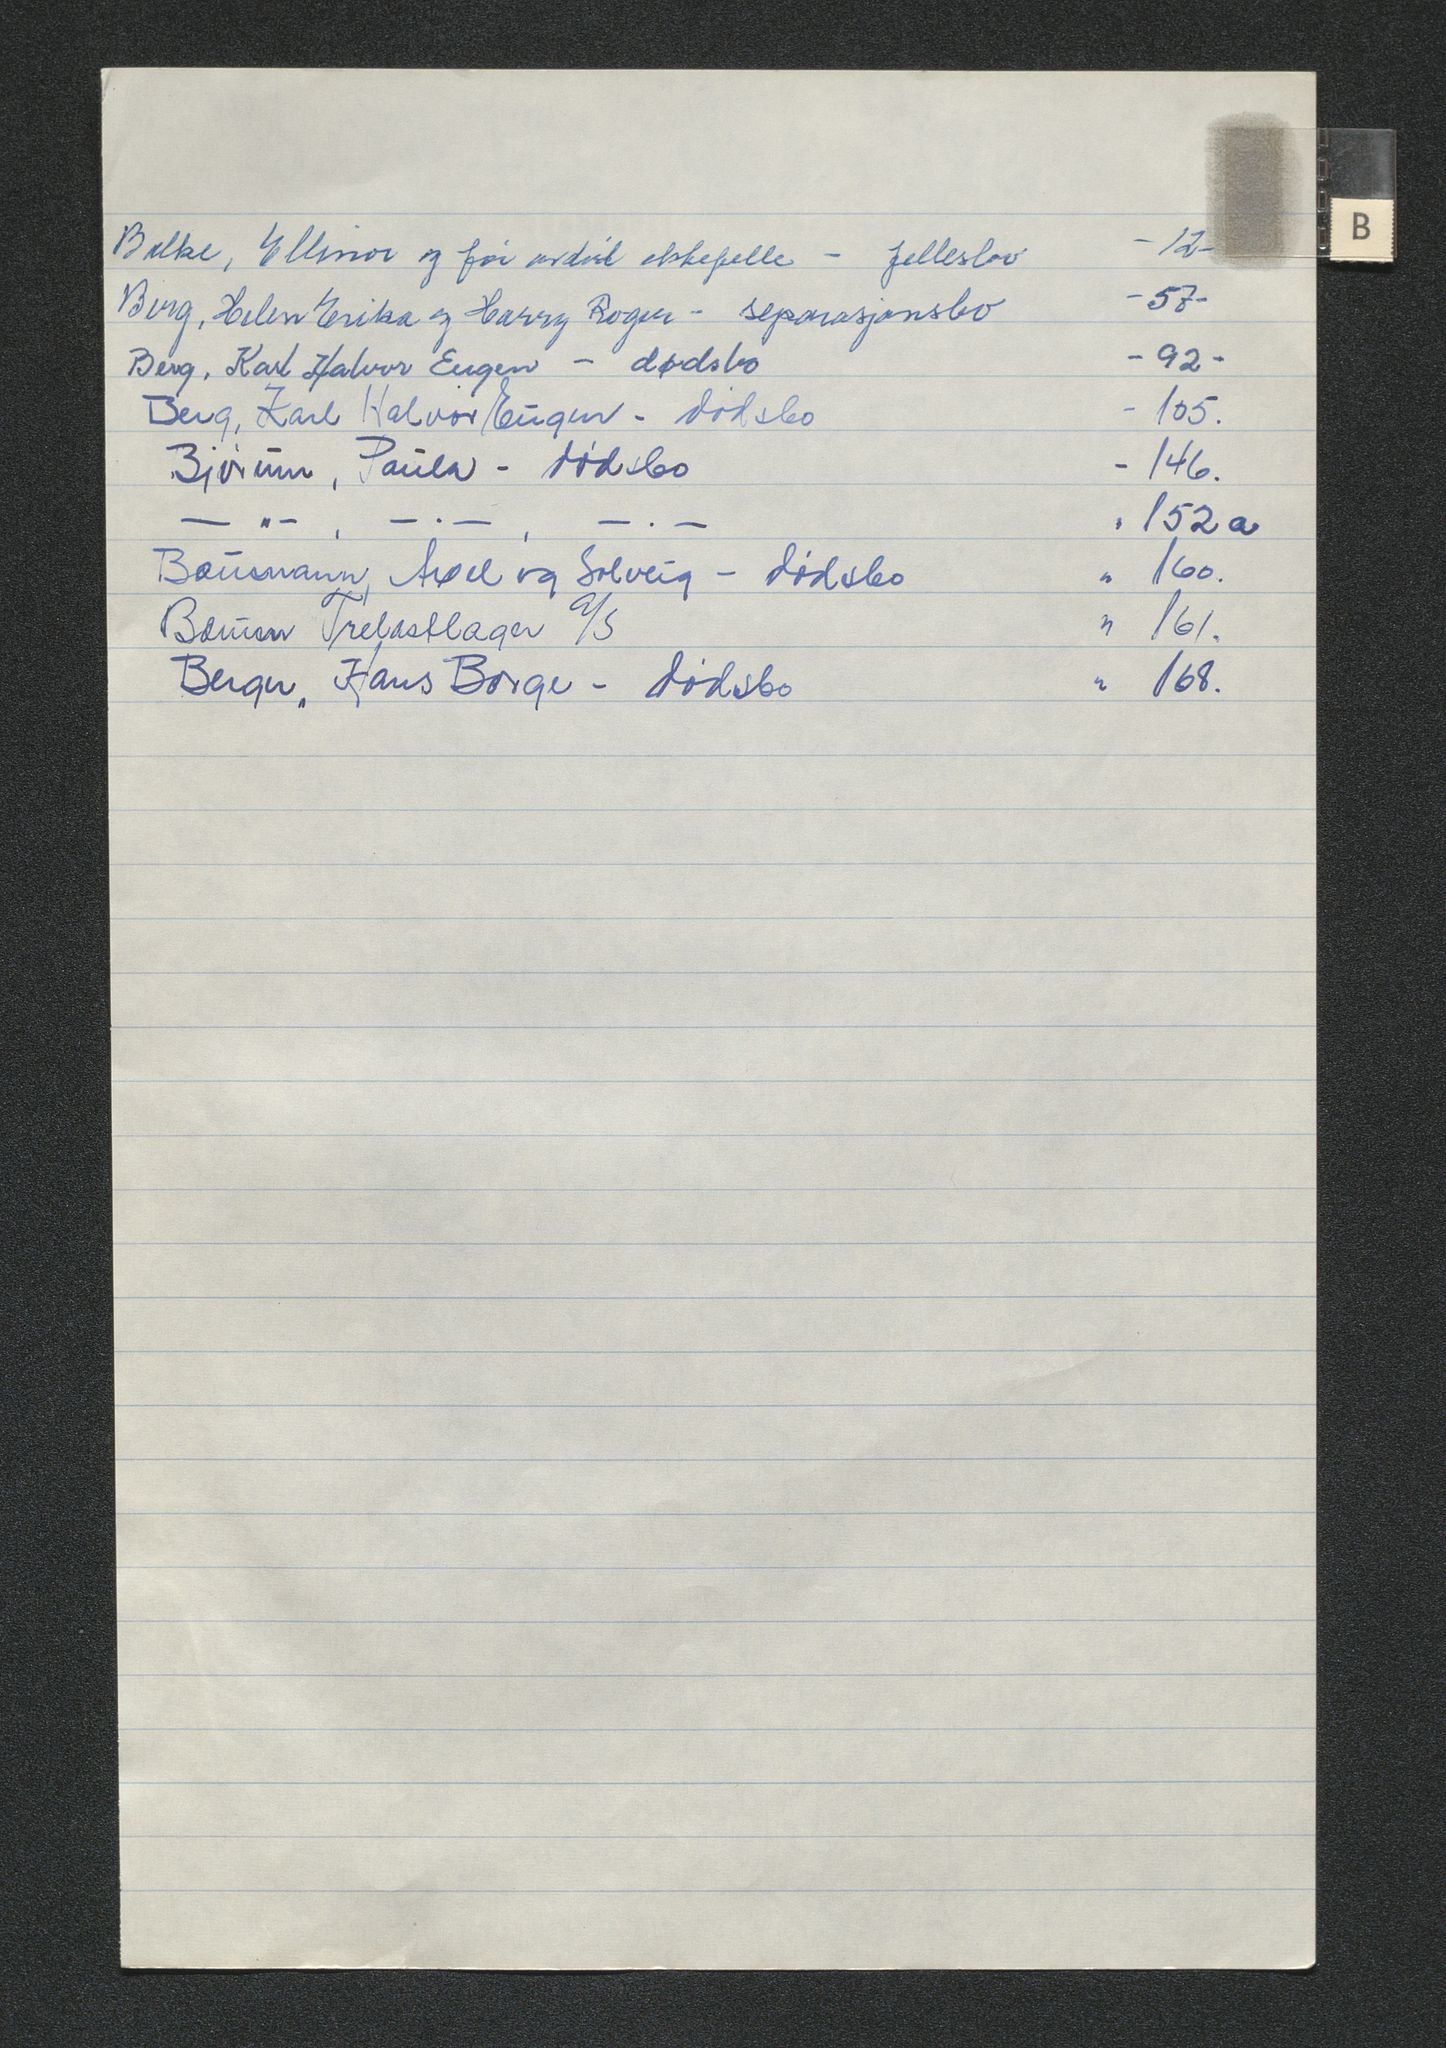 B
Bakke, Ellinor og før avdød ektefelle - fellesbo -12-
Berg, Helen Erika og Harry Roger - separasjonsbo -57-
Berg, Karl Halvor Eugen - dødsbo -92-
Berg, Karl Halvor Eugen - dødsbo - 105.
Bjørum, Paula - dødsbo - 146.
— " —, — . —, — . — " 152 a
Bausmann, Axel og Solveig - dødsbo " 160.
Trelastlager A/S " 161.
Berger, Hans Børge - dødsbo " 168.